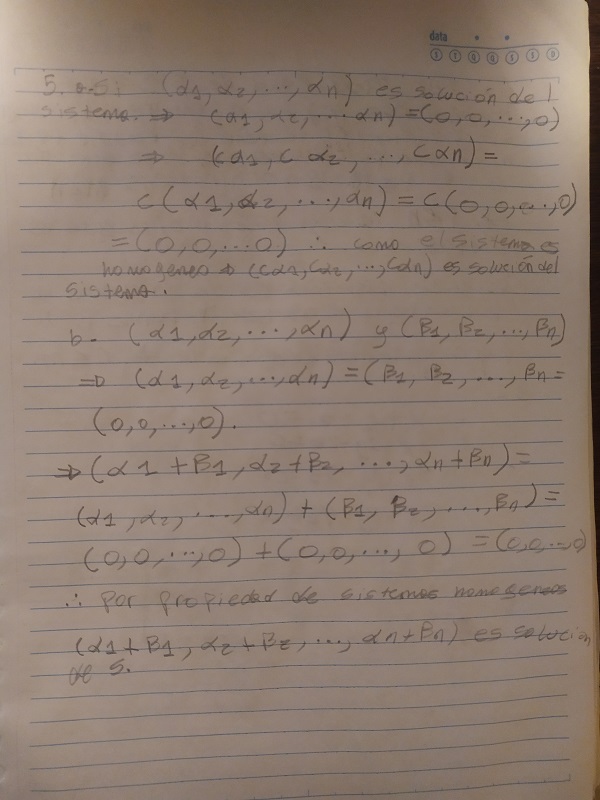 data
S T Q Q S S D
5. a. Si (α1, α2, ..., αn) es solución del
sistema. ⇒ (α1, α2, ... αn) = (0, 0, ..., 0)
⇒ (cα1, c α2, ..., c αn) =
c (α1, α2, ..., αn) = c (0, 0, 0, ..., 0)
= (0, 0, ... 0) ∴ como el sistema es
homogeneo ⇒ (cα1, cα2, ..., cαn) es solución del
sistema.
b. (α1, α2, ..., αn) y (β1, β2, ..., βn)
⇒ (α1, α2, ..., αn) = (β1, β2, ..., βn =
(0, 0, ..., 0).
⇒ (α1 + β1, α2 + β2, ..., αn + βn) =
(α1, α2, ..., αn) + (β1, β2, ..., βn) =
(0, 0, ..., 0) + (0, 0, ..., 0) = (0, 0, ..., 0)
∴ por propiedad de sistemas homogeneos
(α1 + β1, α2 + β2, ..., αn + βn) es solucion
de S.